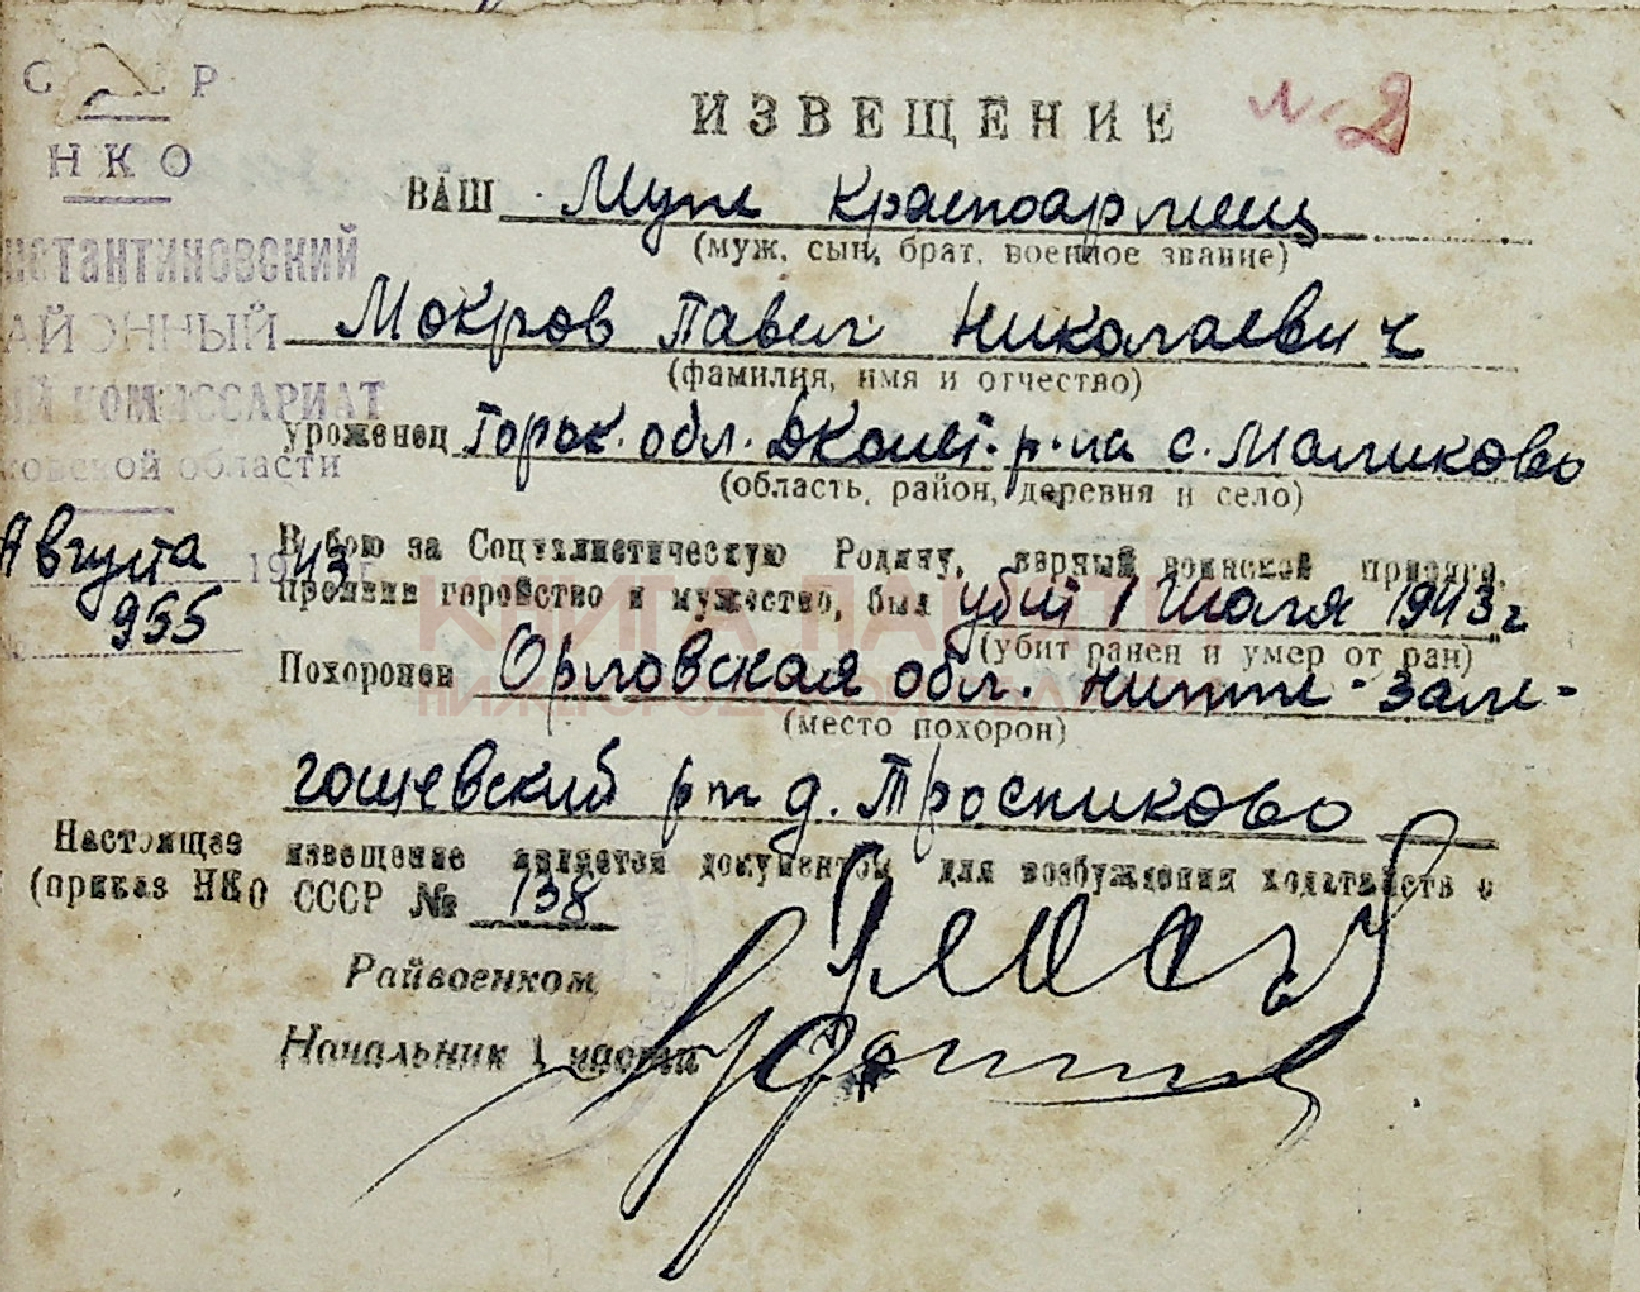 СССР
НКО
нстантиновский
АЙОННЫЙ
ИЙ КОМИССАРИАТ
ковской области
Августа 1943 г
955
ИЗВЕЩЕНИЕ
№ 2
ВАШ Муж красноармеец
(муж, сын, брат, военное звание)
Мокров Павел Николаевич
(фамилия, имя и отчество)
уроженец Горьк. обл. Дконст. р-на с. Маликово
(область, район, деревня и село)
В бою за Социалистическую Родину, верный воинской присяге,
проявив геройство и мужество, был убит 1 Июля 1943 г
(убит ранен и умер от ран)
Похоронен Орловская обл. нижне-зале-
(место похорон)
гощевский р-н д. Тросниково
Настоящее извещение является документом для возбуждения ходатайств о
(приказ НКО СССР № 138
Райвоенком
Начальник 1 части
КНИГА ПАМЯТИ
НИЖЕГОРОДСКОЙ ОБЛАСТИ